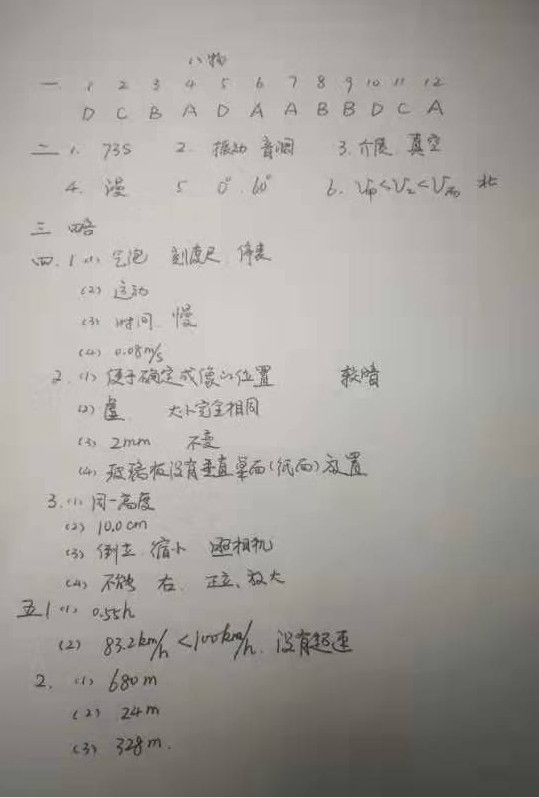 八物
一 1 2 3 4 5 6 7 8 9 10 11 12
D C B A D A A B B D C A
二 1. 735 2. 振动 音调 3. 介质 真空
4. 漫 5 0° 60° 6. V甲<V乙<V丙 北
三 略
四. 1 (1) 气泡 刻度尺 停表
(2) 运动
(3) 时间 慢
(4) 0.08m/s
2. (1) 便于确定成像的位置 较暗
(2) 虚 大小完全相同
(3) 2mm 不变
(4) 玻璃板没有垂直桌面(纸面)放置
3. (1) 同一高度
(2) 10.0cm
(3) 倒立 缩小 照相机
(4) 不能 右 正立、放大
五 1 (1) 0.55h
(2) 83.2km/h <100km/h. 没有超速
2. (1) 680m
(2) 24m
(3) 328m.